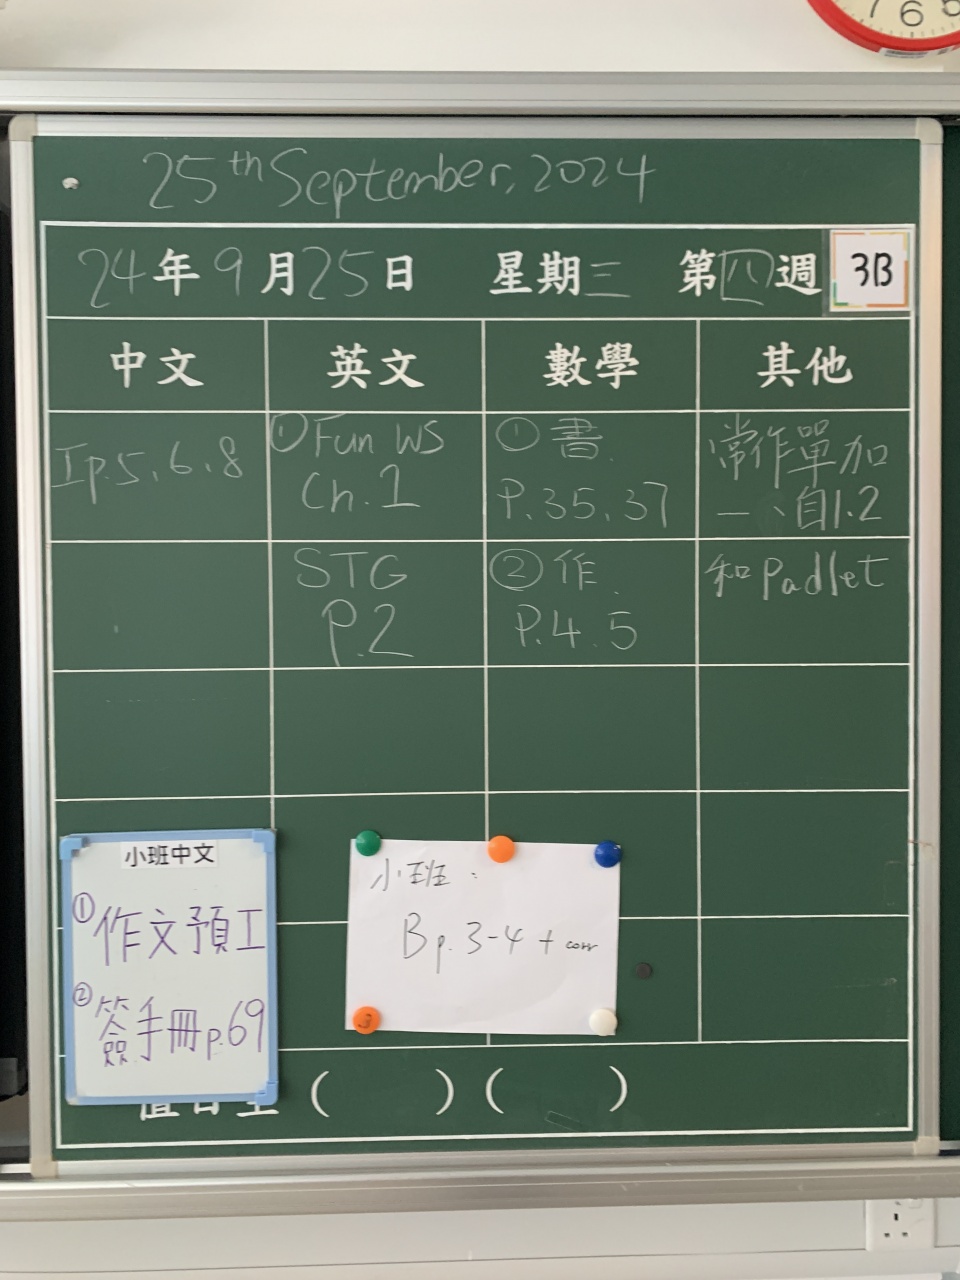 7 6 5
25th September, 2024
24年9月25日 星期三 第四週 3B
中文 英文 數學 其他
Ip.5、6、8
① Fun WS
Ch.1
STG
P.2
① 書
P.35、37
② 作
P.4、5
常作單加
一、自1.2
和Padlet
小班中文
① 作文預工
② 簽手冊p.69
小班:
Bp. 3-4 + corr
3
值日生 ( ) ( )